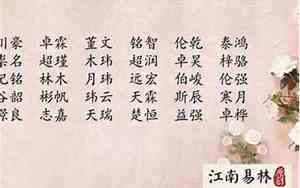 川豪 卓霖 董文 铭智 伦乾 泰鸿
崇名 超瑾 木玮 超润 卓昊 梓骆
纪铭 林木 月玮 远宏 伯峻 伦强
谷韶 彬帆 玮云 天霖 斯辰 寒月
源良 志嘉 天瑞 楚恒 益强 卓桦
江南易林